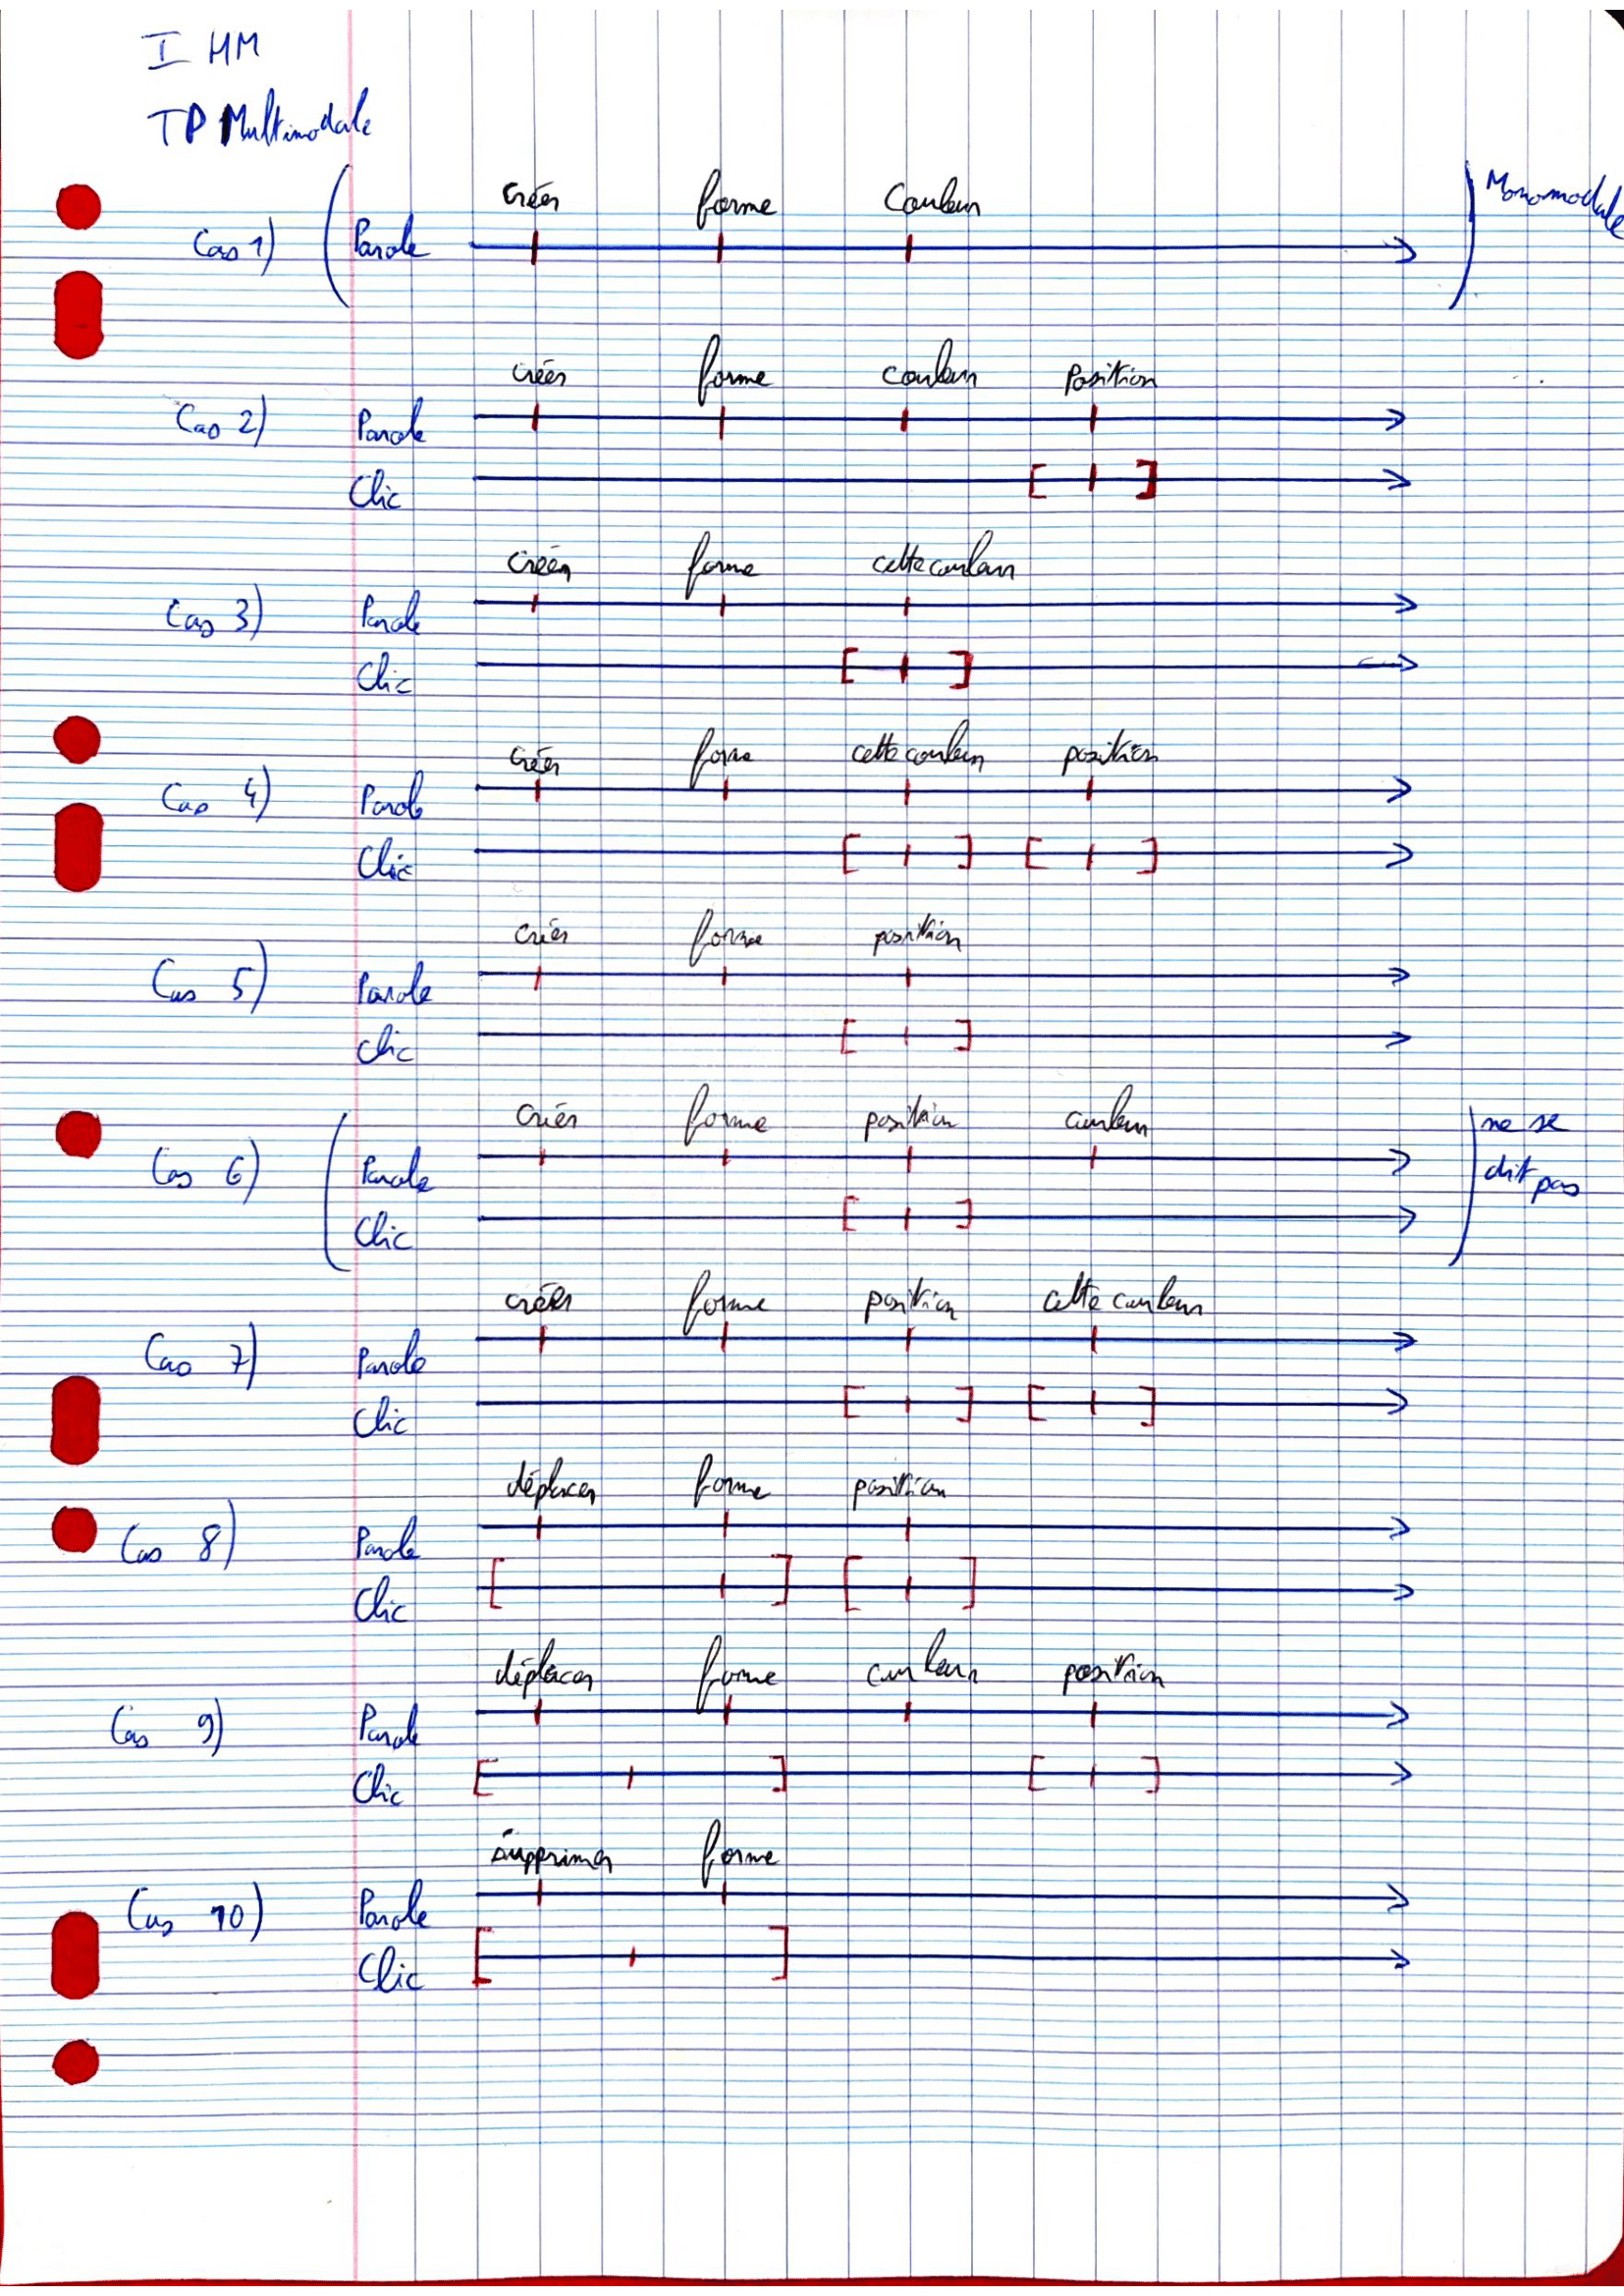 I HM
TP Multimodale
créer forme Couleur
Cas 1) ( Parole ) Monomodale
créer forme couleur Position
Cas 2) Parole
Clic [ ]
créer forme cette couleur
Cas 3) Parole
Clic [ ]
créer forme cette couleur position
Cas 4) Parole
Clic [ ] [ ]
créer forme position
Cas 5) Parole
Clic [ ]
créer forme position couleur
Cas 6) ( Parole ) ne se
dit pas
Clic [ ]
créer forme position cette couleur
Cas 7) Parole
Clic [ ] [ ]
déplacer forme position
Cas 8) Parole
Clic [ ] [ ]
déplacer forme couleur position
Cas 9) Parole
Clic [ ] [ ]
supprimer forme
Cas 10) Parole
Clic [ ]